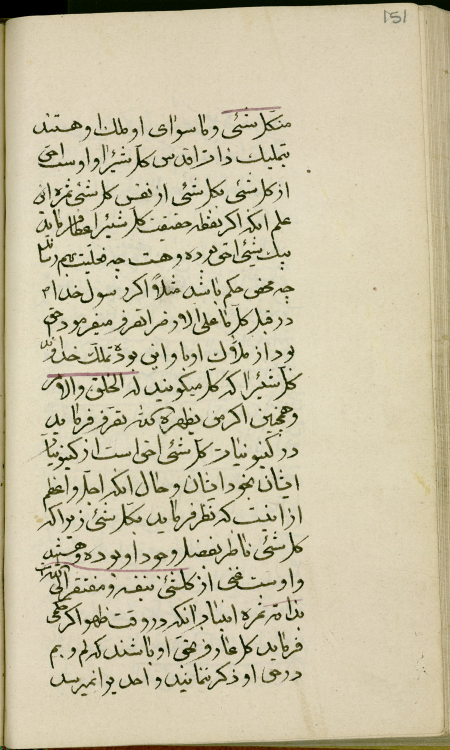 151
من کلشیئی و ما سوای او ملک او هستند
بتملیک ذات اقدس کلشیئ را و اوست احق
از کلشیئی بکلشیئی از نفس کلشیئی ثمره این
علم اینکه اگر نقطه حقیقت کلشیئ را عطا فرماید
بیک شیئی احق بوده و هست چه فعلیت بهم رساند
چه محض حکم باشد مثلا اگر رسول خدا ص
در قبل کل ما علی الارض را تصرف میفرمود حق
بود از ملاک او با و این بوده تملک خداوند
کلشیئ را که کل میگویند له الخلق والامر
وهمچنین اگر من یظهره الله تصرف فرماید
در کینونیات کلشیئی احق است از کینونیات
ایشان بخود ایشان و حال آنکه اجل و اعظم
از اینست که نظر فرماید بکلشیئی زیرا که
کلشیئی ناظر بفضل وجود او بوده و هستند
و اوست غنی از کلشیئ بنفسه و مفتقر الی الله
بذاته ثمره اینباب آنکه در وقت ظهور اگر حکمی
فرماید کل عارف بحق او باشند که لم و بم
در حق او ذکر ننمایند و احدی را نمیرسد